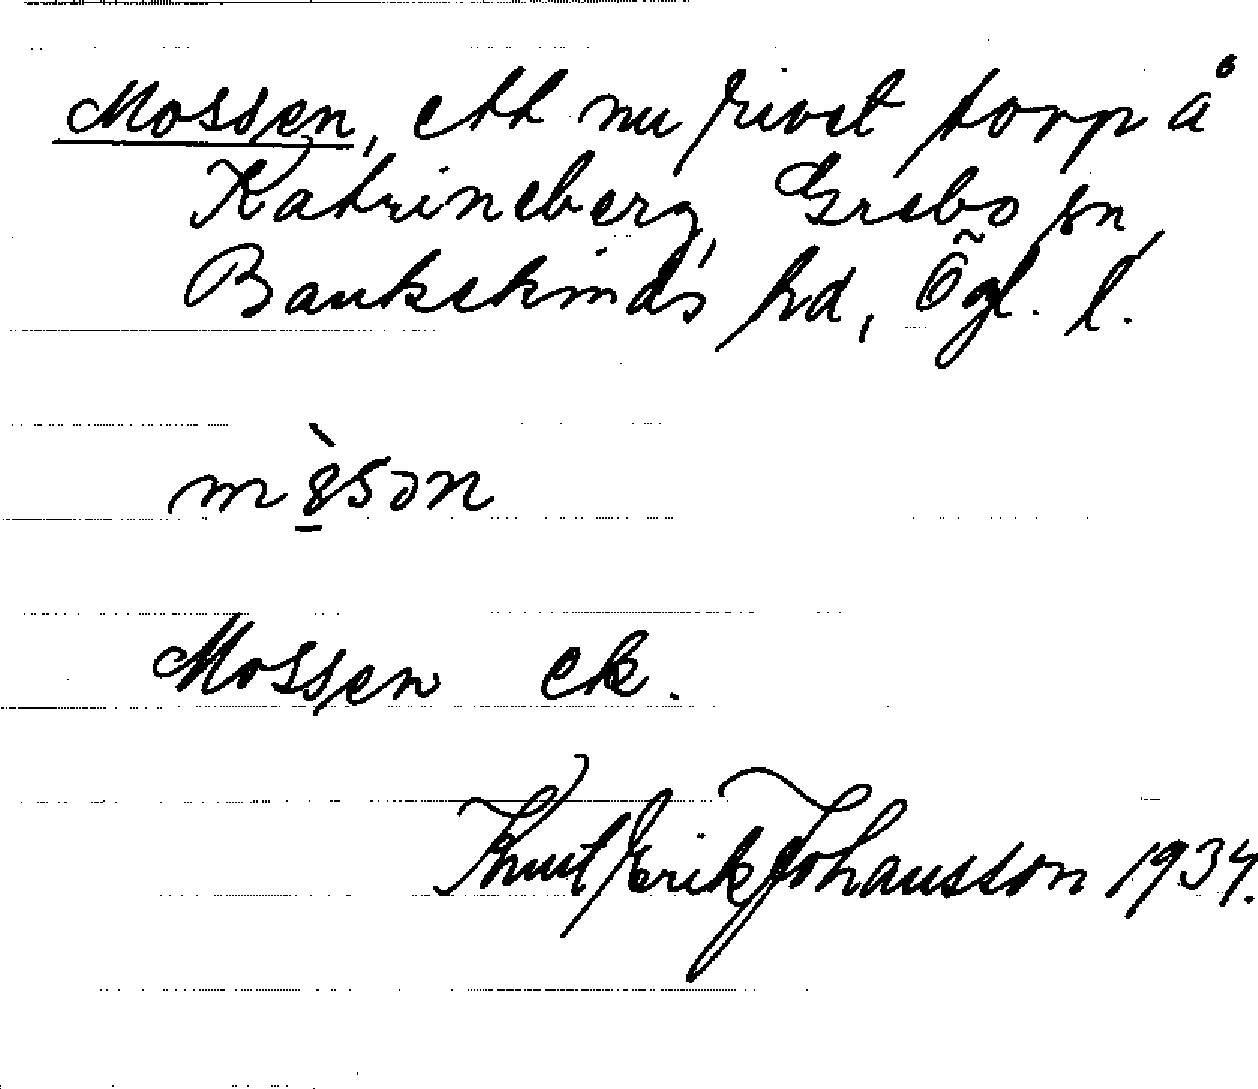 Mossen, ett nu rivet torp å
Katrineberg, Grebo sn,
Bankekinds hd, Ögl. l.
Mossen ek.
Knut Erik Johansson 1934.